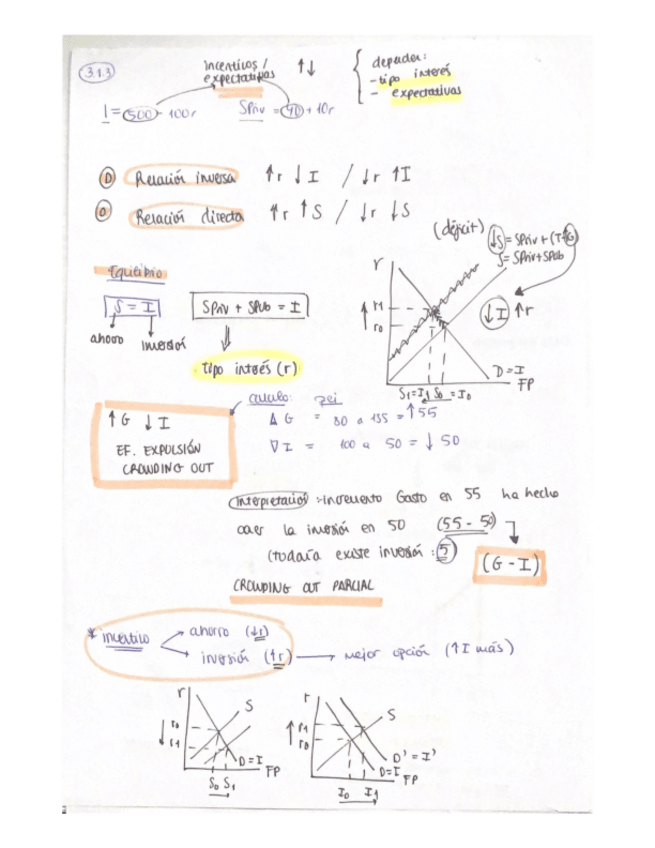 3.1.3
incentivos / expectativas ↑↓
depender:
- tipo interés
- expectativas
I = 500 - 100r SPriv = 40 + 10r
① Relación inversa ↑r ↓I / ↓r ↑I
② Relación directa ↑r ↑S / ↓r ↓S
(déficit) ↓S = SPriv + (T-G)
S = SPriv + SPub
Equilibrio
S = I SPriv + SPub = I
ahorro inversión
tipo interés (r)
r
r1
r0
↓I ↑r
D = I
FP
S1=I1 S0=I0
↑G ↓I
EF. EXPULSIÓN
CROWDING OUT
calculo:
Δ G = 80 a 135 = ↑55
∇ I = 100 a 50 = ↓50
Interpretación: incremento Gasto en 55 ha hecho
caer la inversión en 50 (55 - 50)
(todavía existe inversión: 5)
(G - I)
CROWDING OUT PARCIAL
* incentivo
ahorro (↓r)
inversión (↑r) → mejor opción (↑I más)
r
S
r0
r1
D=I
FP
S0 S1
r
S
r1
r0
D' = I'
D=I
FP
I0 I1